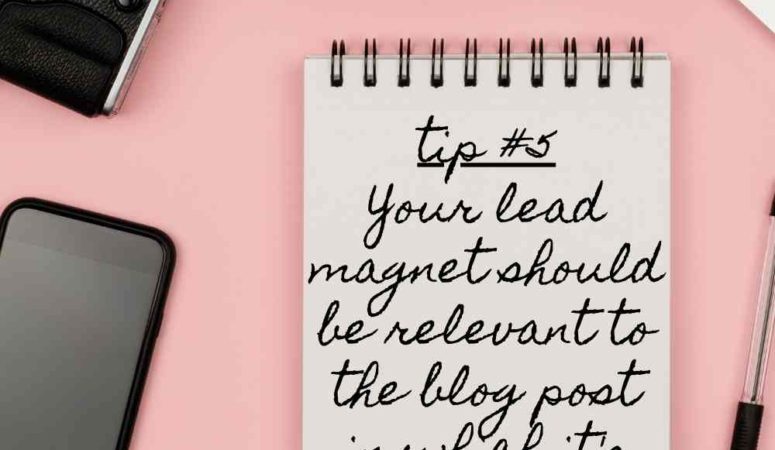 tip #5
Your lead
magnet should
be relevant to
the blog post
in which it's